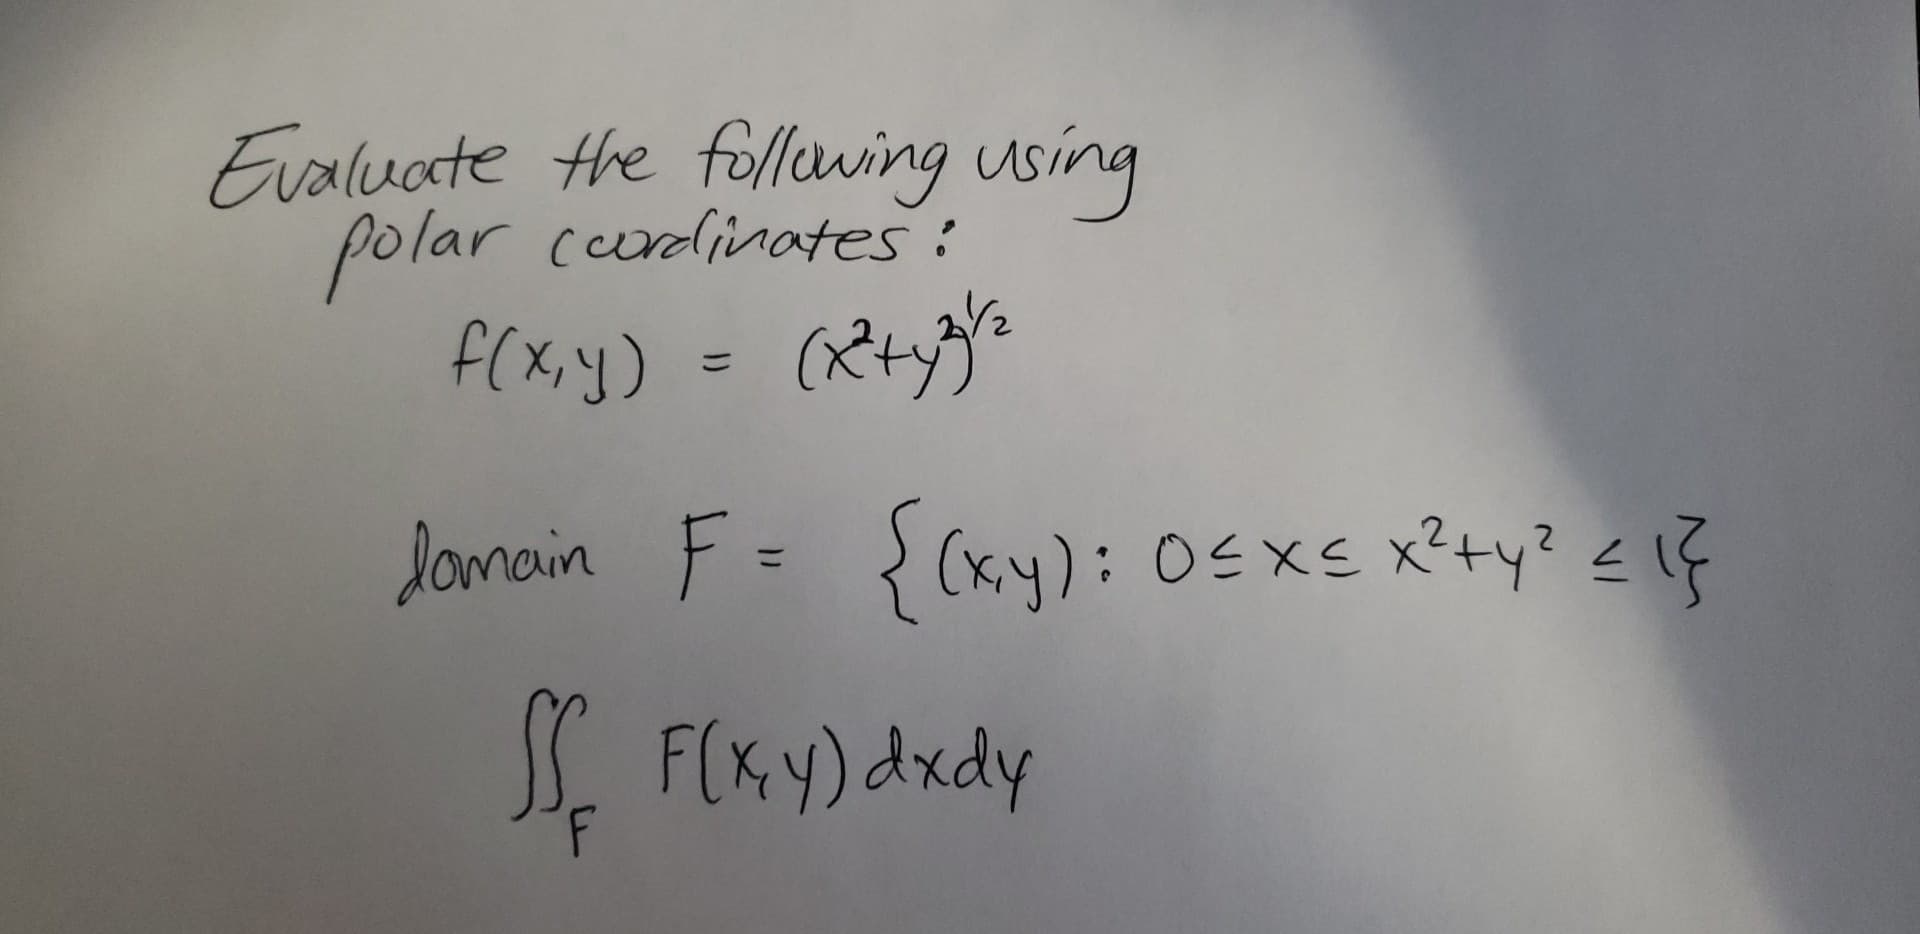 Evaluate the following using
polar coordinates:
f(x,y) = (x²+y²)^1/2
domain F = {(x,y): 0≤x≤ x²+y² ≤1}
∬_F F(x,y) dxdy